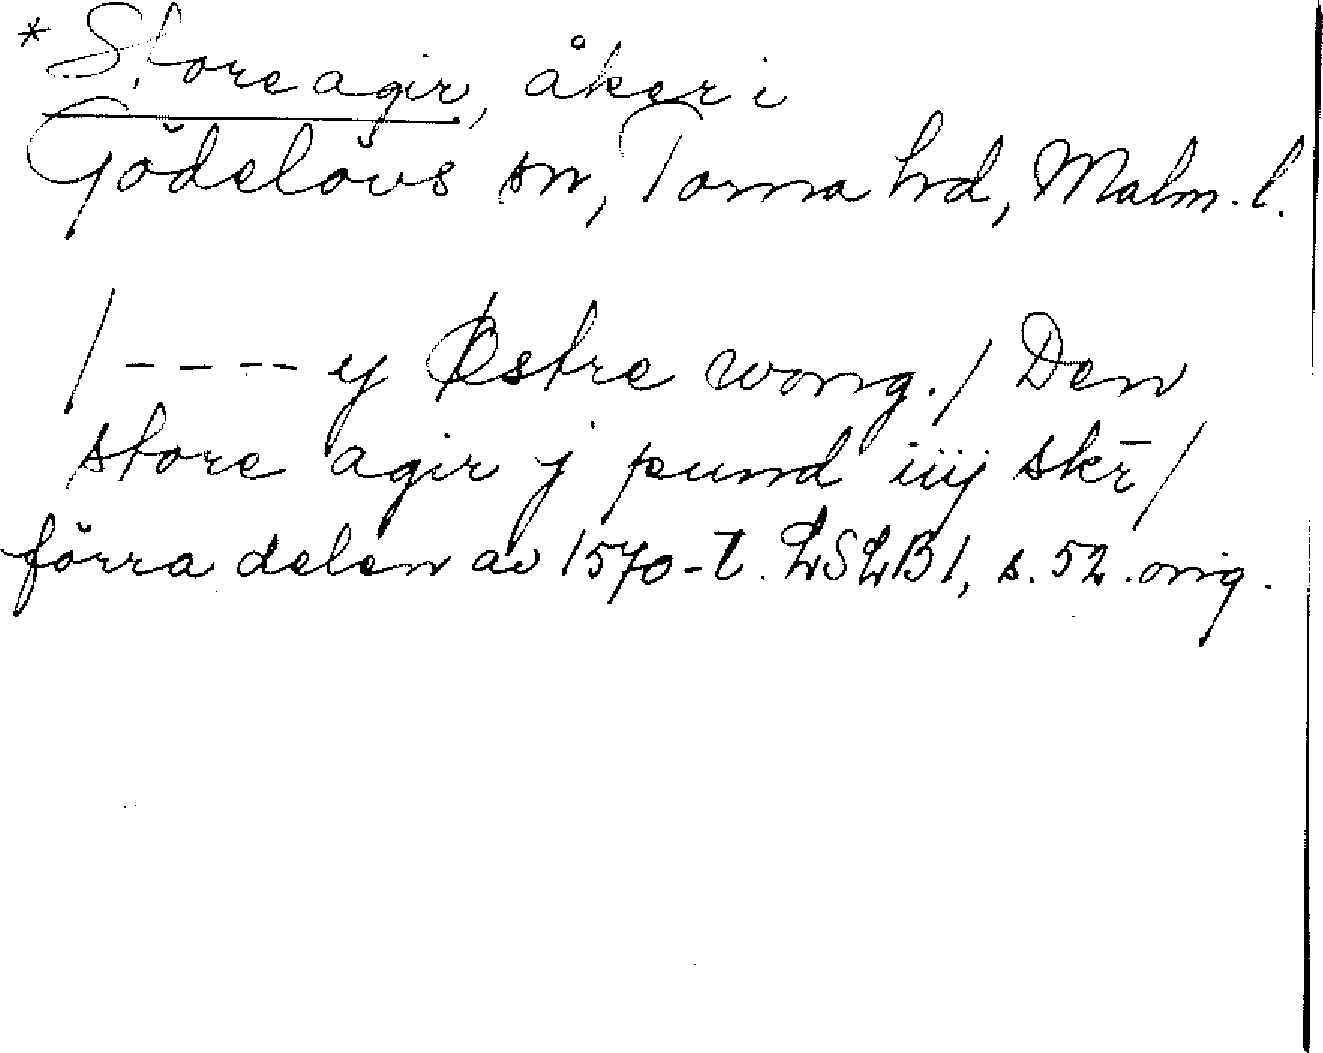 * Store agir, åker i
Gödelövs sn, Torna hd, Malm. l.
/ - - - - y Østre wong. / Den
store agir j pund iiij skr̄ /
förra delen av 1570-t. LSLB 1, s. 52. orig.